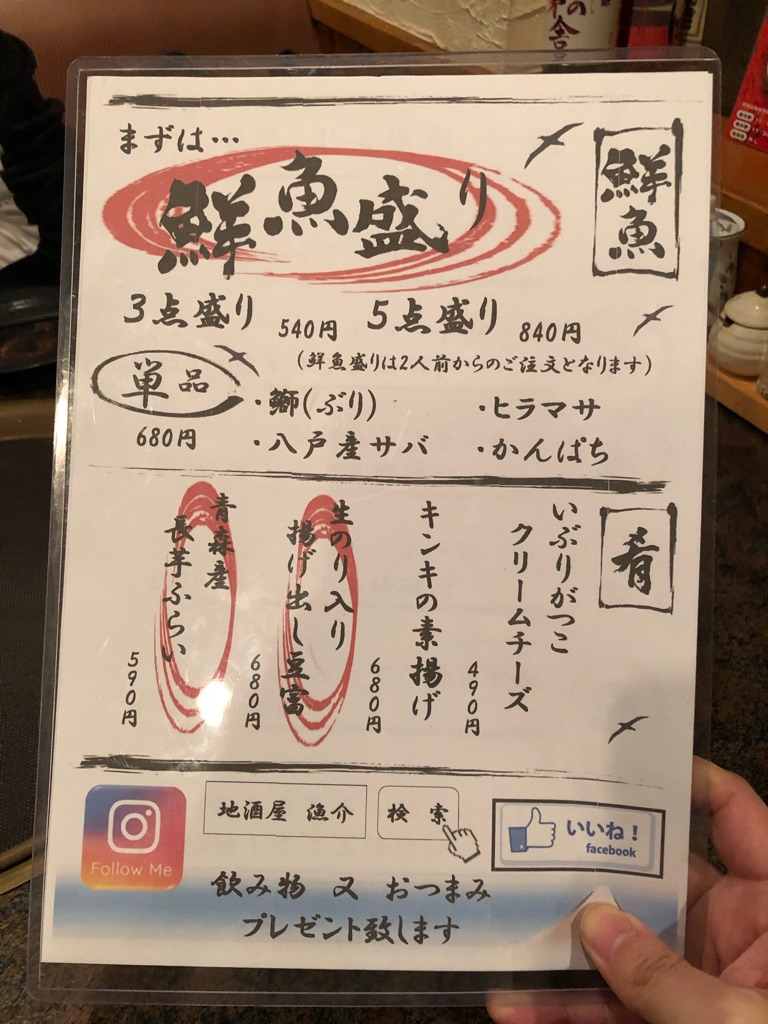 まずは…
鮮魚盛り
鮮魚
3点盛り 540円 5点盛り 840円
(鮮魚盛りは2人前からのご注文となります)
単品
680円
・鰤(ぶり)
・ヒラマサ
・八戸産サバ
・かんぱち
肴
いぶりがつこ
クリームチーズ
490円
キンキの素揚げ
680円
生のり入り
揚げ出し豆富
680円
青森産
長芋ふらい
590円
Follow Me
地酒屋 漁介
検索
いいね!
facebook
飲み物 又 おつまみ
プレゼント致します